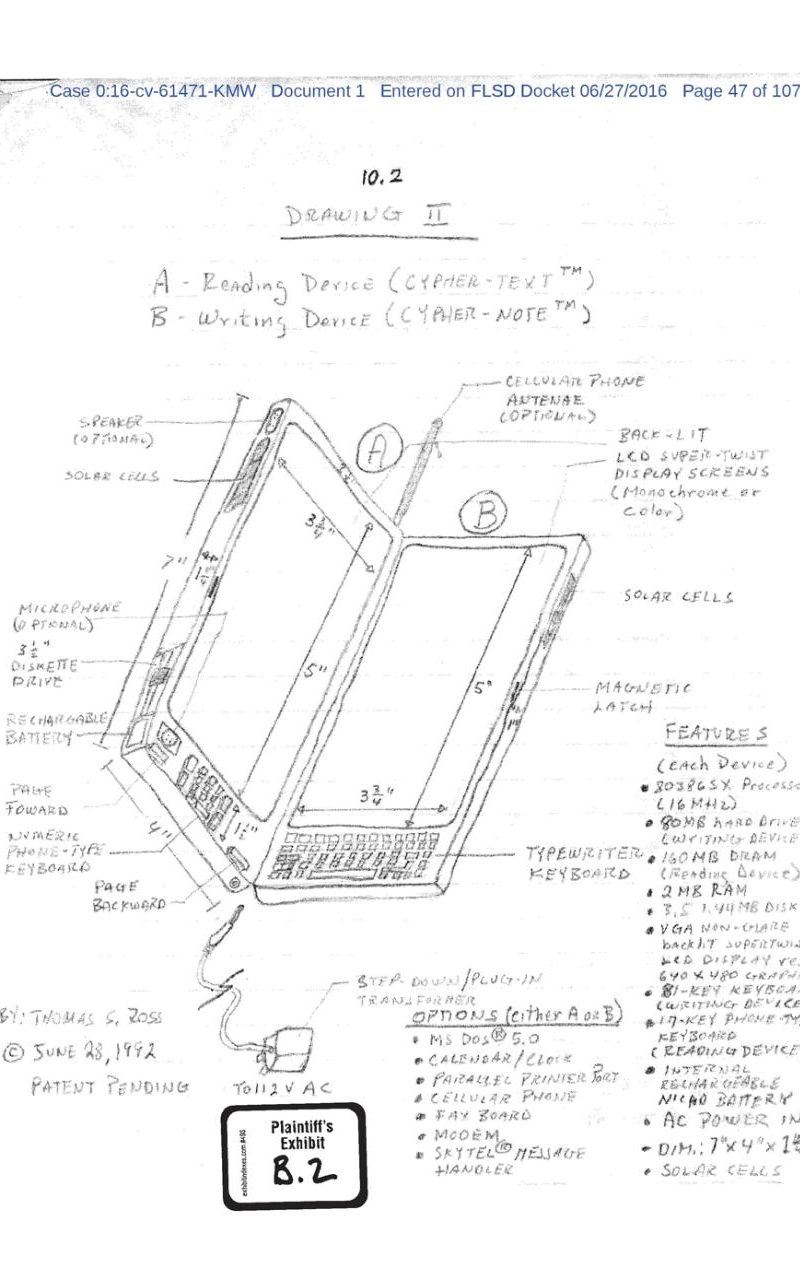 Case 0:16-cv-61471-KMW Document 1 Entered on FLSD Docket 06/27/2016 Page 47 of 107
10.2
DRAWING II
A - Reading Device (CYPHER-TEXT™)
B - Writing Device (CYPHER-NOTE™)
CELLULAR PHONE
ANTENAE
(OPTIONAL)
SPEAKER
(OPTIONAL)
SOLAR CELLS
A
B
BACK-LIT
LCD SUPER-TWIST
DISPLAY SCREENS
(Monochrome or
Color)
3 3/4"
7"
SOLAR CELLS
MICROPHONE
(OPTIONAL)
3 1/2"
DISKETTE
DRIVE
5"
5"
MAGNETIC
LATCH
RECHARGABLE
BATTERY
PAGE
FOWARD
4"
3 3/4"
1 1/2"
NUMERIC
PHONE-TYPE
KEYBOARD
PAGE
BACKWARD
TYPEWRITER
KEYBOARD
FEATURES
(each Device)
• 80386SX Processo
(16 MHz)
• 80MB HARD DRIVE
(WRITING DEVICE
• 160MB DRAM
(Reading Device)
• 2 MB RAM
• 3.5 1.44MB DISK
• VGA NON-GLARE
backlIT SUPERTWIS
LCD DISPLAY res
640 X 480 GRAPHI
• 81-KEY KEYBOA
(WRITING DEVICE
• 17-KEY PHONE-TY
KEYBOARD
(READING DEVICE
• INTERNAL
RECHARGEABLE
NICAD BATTERY
• AC POWER IN
• DIM.: 7"X 4"X 1
• SOLAR CELLS
STEP-DOWN/PLUG-IN
TRANSFORMER
TO 112 V AC
OPTIONS (either A or B)
• MS DOS® 5.0
• CALENDAR/CLOCK
• PARALLEL PRINTER PORT
• CELLULAR PHONE
• FAX BOARD
• MODEM
• SKYTEL® MESSAGE
HANDLER
BY: THOMAS S. ROSS
© JUNE 28, 1992
PATENT PENDING
Plaintiff's
Exhibit
B.2
exhibitindexes.com #495